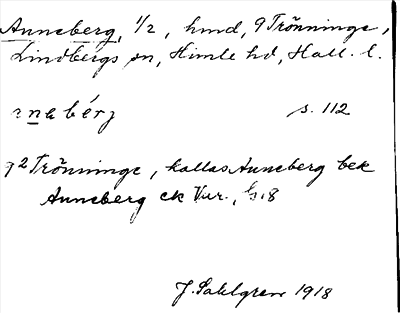 Anneberg, 1/2, hmd, 9 Trönninge,
Lindbergs sn, Himle hd, Hall. l.
anabérj s. 112
92 Trönninge, kallas Anneberg bek
Anneberg ek Vur., G:8
J. Sahlgren 1918